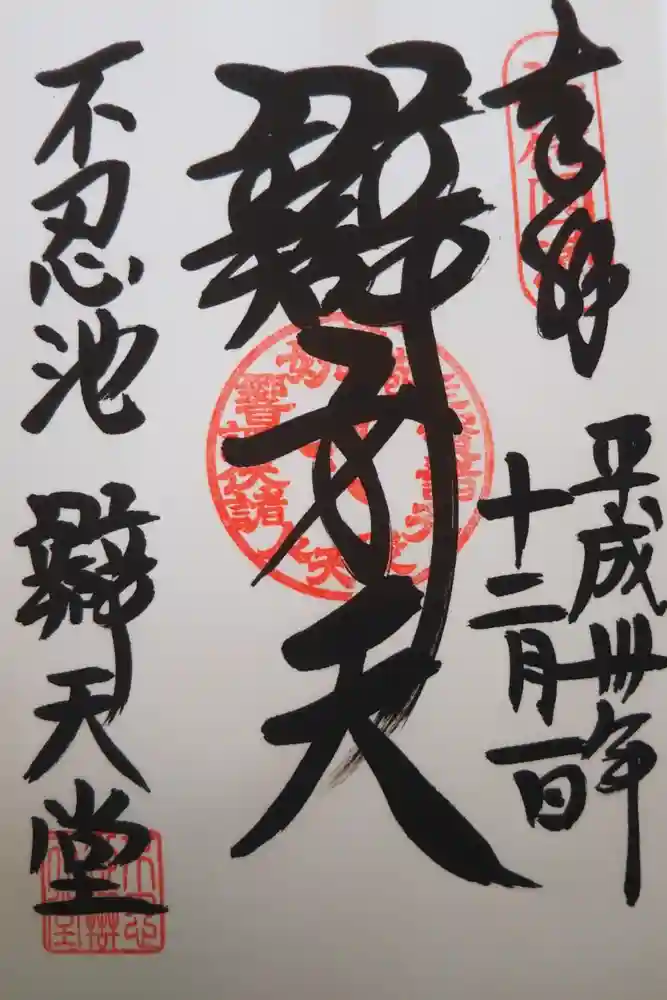 奉拝
平成卅年
十二月一日
辯才天
不忍池
辯天堂